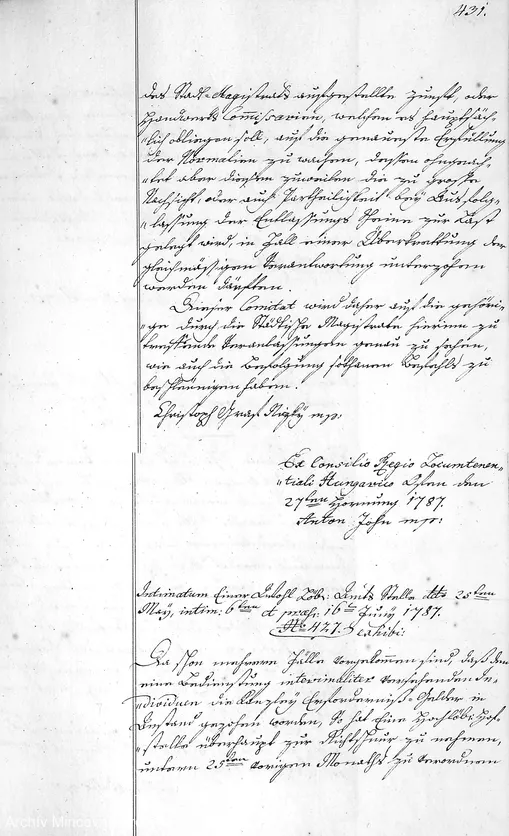 431.
des Stadt-Magistrats aufgestellte Zunft, oder
Handwerks Commissarien, welchen es hauptsäch-
"lich obliegen soll, auf die genaueste Erfüllung
der Normalien zu wachen, dessen ohngeach-
"tet aber diesen zuweilen die zu große
Nachsicht, oder auch Partheilichkeit bey Ausfolg-
"lassung der Entlassungs Scheine zur Last
gelegt wird, in Fall einer Übertrettung der
gleichmässigen Verantwortung unterzohen
werden dürften.
Dieser Comitat wird daher auf die gehöri-
"ge durch die Städtische Magistrate hierinn zu
treffende Veranlassungen genau zu sehen,
wie auch die Befolgung solchanen Befehls zu
beschleunigen haben.
Christoph Graf Nizky mp:
Ex Consilio Regio Locumtenen-
"tiali Hungarico Ofen den
27ten Hornung 1787.
Anton John mp:
Intimatum Einer Wohl Löb: Amts Stelle dto 25ten
May, intim: 6ten et præs: 16t Juny 1787.
No 427. exhibi:
Da schon mehrere Fälle vorgekommen sind, daß den
eine Bedienstung interimaliter versehenden In-
"dividuen die Kanzley Erforderniß-Gelder in
Bestand gezohen worden, So hat Eine Hochlöb: Hof-
"stelle überhaupt zur Richtschnur zu nehmen,
unterm 25ten vorigen Monaths zu verordnen
Archiv